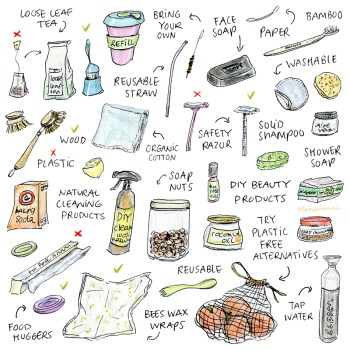 LOOSE LEAF
TEA
BRING
YOUR
OWN
FACE
SOAP
BAMBOO
PAPER
REFILL
WASHABLE
REUSABLE
STRAW
loose
leaf
tea
WOOD
PLASTIC
ORGANIC
COTTON
SAFETY
RAZOR
SOLID
SHAMPOO
SHOWER
SOAP
SOAP
NUTS
baking
soda
NATURAL
CLEANING
PRODUCTS
DIY
DIY BEAUTY
PRODUCTS
COCONUT
OIL
TRY
PLASTIC
FREE
ALTERNATIVES
REUSABLE
TAP
WATER
FOOD
HUGGERS
BEES WAX
WRAPS